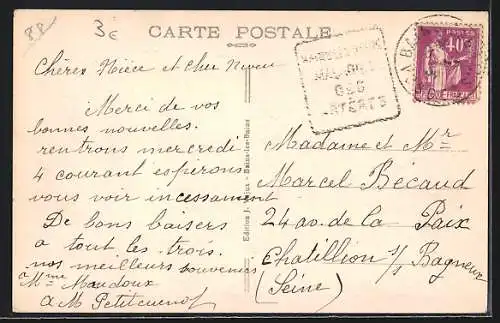 8P
3€
CARTE POSTALE
Chères Nièce et Cher Neveu
Merci de vos
bonnes nouvelles.
rentrons mercredi
4 courant espérons
vous voir incessament
De bons baisers
a tout les trois.
nos meilleurs souvenirs
a Mme Maudoux
a M Petitcuenot
Edition J. - Bains-les-Bains
BA
MALADIES
DES
POSTES
40c
Madame et Mr
Marcel Bécaud
24 av. de la Paix
Chatillion s/s Bagneux
(Seine)